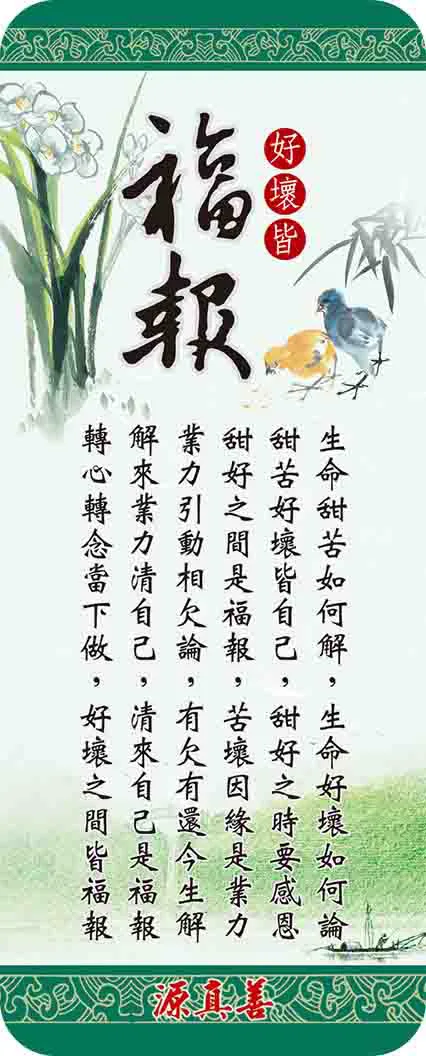 好壞皆
福報
生命甜苦如何解，生命好壞如何論
甜苦好壞皆自己，甜好之時要感恩
甜好之間是福報，苦壞因緣是業力
業力引動相欠論，有欠有還今生解
解來業力清自己，清來自己是福報
轉心轉念當下做，好壞之間皆福報
源真善